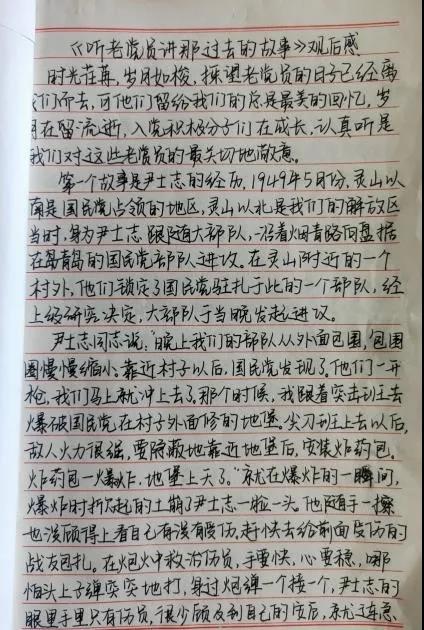 《听老党员讲那过去的故事》观后感
时光荏苒，岁月如梭，探望老党员的日子已经离
我们而去，可他们留给我们的总是最美的回忆，岁
月在留流逝，入党积极分子们在成长，认真听是
我们对这些老党员的最关切地敬意。
第一个故事是尹士志的经历，1949年5月份，灵山以
南是国民党占领的地区，灵山以北是我们的解放区
当时，身为尹士志跟随大部队，沿着烟青路向盘据
在岛青岛的国民党部队进攻。在灵山附近的一个
村外，他们锁定了国民党驻扎于此的一个部队，经
上级研究决定，大部队于当晚发起进攻。
尹士志同志说，"晚上我们的部队从外面包围，包围
圈慢慢缩小，靠近村子以后，国民党发现了，他们一开
枪，我们马上就冲上去了，那个时候，我跟着突击班去
爆破国民党在村子外面修的地堡，尖刀班上去以后，
敌人火力很强，要隐蔽地靠近地堡后，安装炸药包，
炸药包一爆炸，地堡上天了。"就在爆炸的一瞬间，
爆炸时掀起的土崩了尹士志一脸一头。他随手一擦
也没顾得上看自己有没有受伤，赶快去给前面受伤的
战友包扎。在炮火中救治伤员，手要快，心要稳，哪
怕头上子弹突突地打，身边炮弹一个接一个，尹士志的
眼里手里只有伤员，很少顾及到自己的安危，就这急